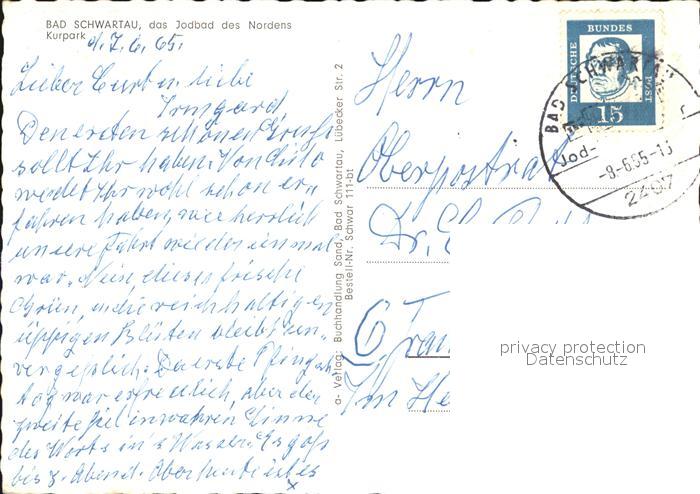 BAD SCHWARTAU, das Jodbad des Nordens
Kurpark
d. 7. 6. 65.
Lieber Curt u. liebe
Irmgard,
Den ersten schönen Gruß
sollt Ihr haben. Von Guido
werdet Ihr wohl schon er-
fahren haben, wie herrlich
unsere Fahrt wieder einmal
war. Nein, dieses frische
Grün, u. die reichhaltigen
üppigen Blüten bleibt un-
vergeßlich. Da erste Pfingst-
tag war erfreulich, aber der
zweite fiel im wahren Sinne
des Worts in's Wasser. Es goß
bis z. Abend. Aber heute ist es
a- Verlag: Buchhandlung Sand, Bad Schwartau, Lübecker Str. 2
Bestell-Nr. Schwar 111-bt
Herrn
Oberpostrat
Dr.
6
DEUTSCHE BUNDESPOST
15
BAD SCHWARTAU
Jod-
-8-6.65-13
2407
privacy protection
Datenschutz